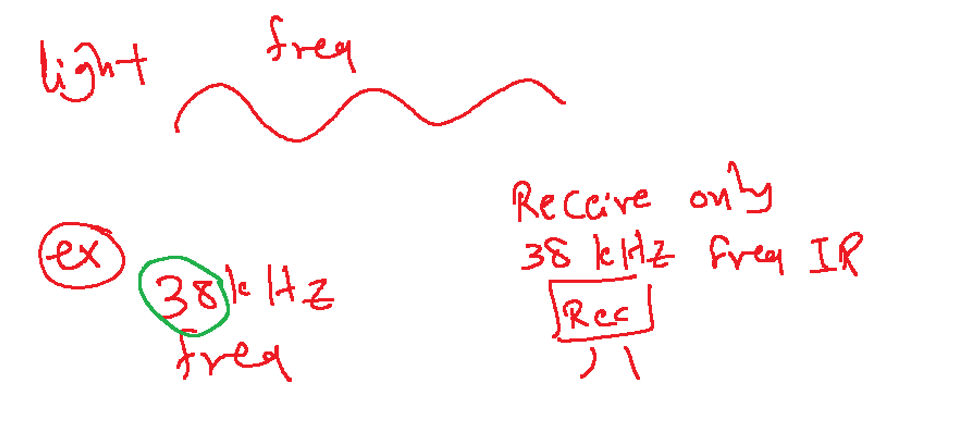 light freq
ex 38 kHz
freq
Receive only
38 kHz freq IR
Rec